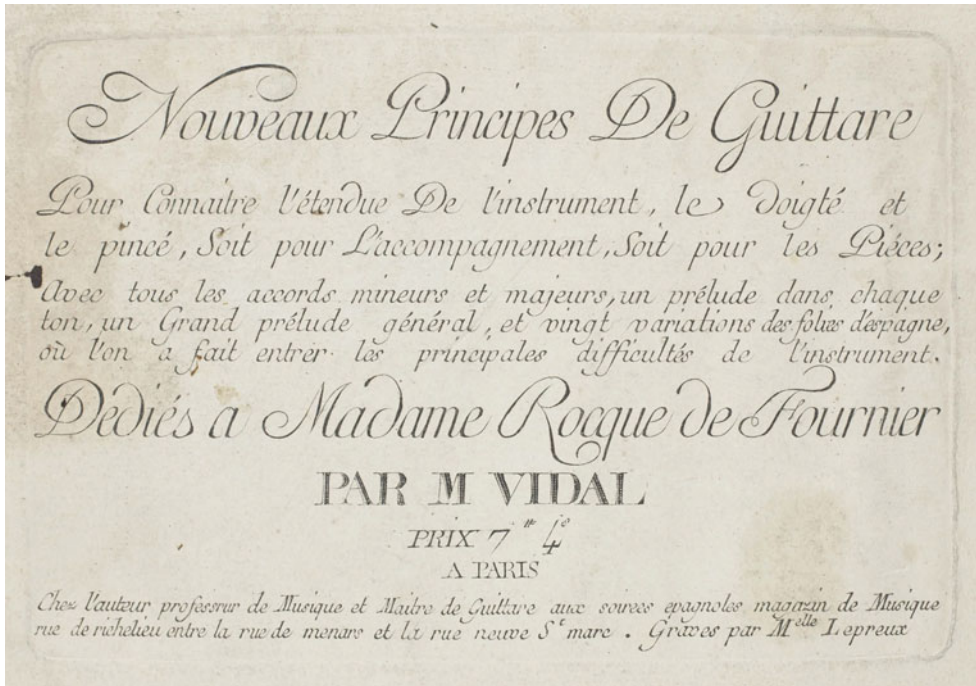 Nouveaux Principes De Guittare
Pour Connaitre l'étendue De l'instrument, le doigté et
le pincé, Soit pour L'accompagnement, Soit pour les Piéces;
Avec tous les accords mineurs et majeurs, un prélude dans chaque
ton, un Grand prélude général, et vingt variations des folies d'espagne,
où l'on a fait entrer les principales difficultés de l'instrument.
Dédiés a Madame Rocque de Fournier
PAR M VIDAL
PRIX 7 ᵗᵗ 4ˢ
A PARIS
Chez l'auteur professeur de Musique et Maitre de Guittare aux soirees epagnoles, magazin de Musique
rue de richelieu entre la rue de menars et la rue neuve Sᵗ marc. Gravés par Mᵉˡˡᵉ Lepreux